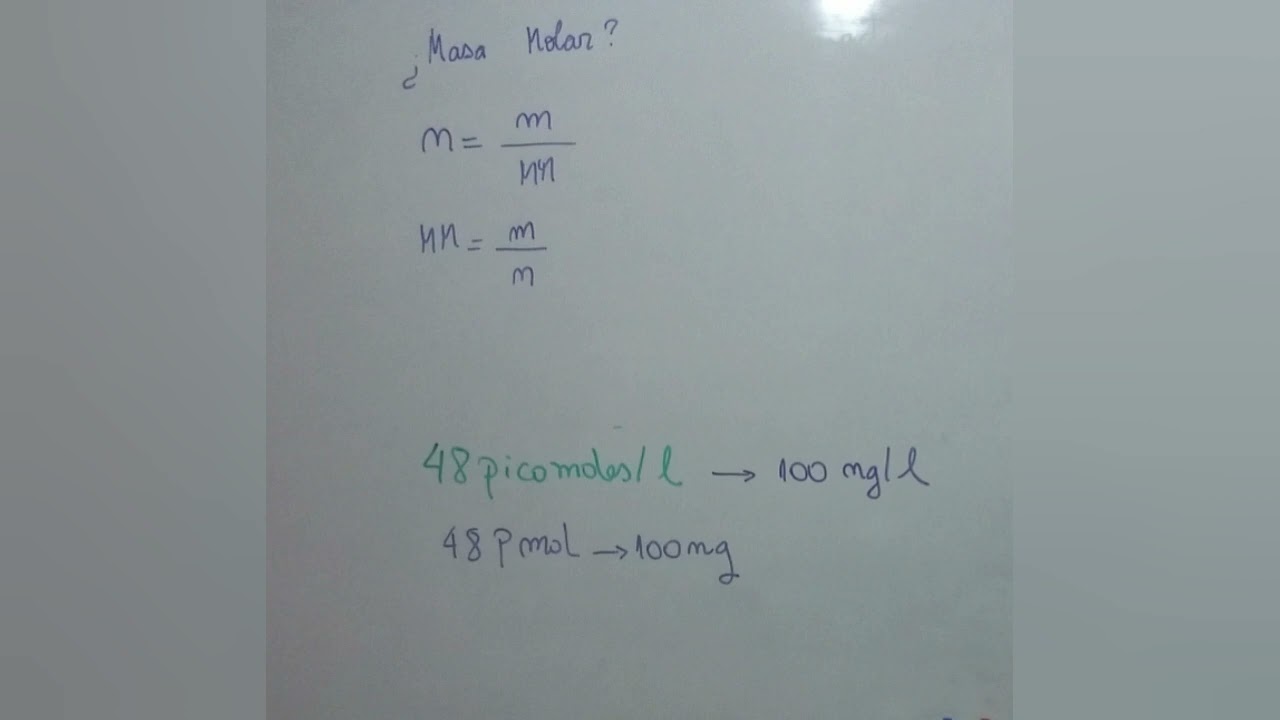 ¿Masa Molar?
n = m / MM
MM = m / n
48 picomoles/l → 100 ng/l
48 pmol → 100 ng